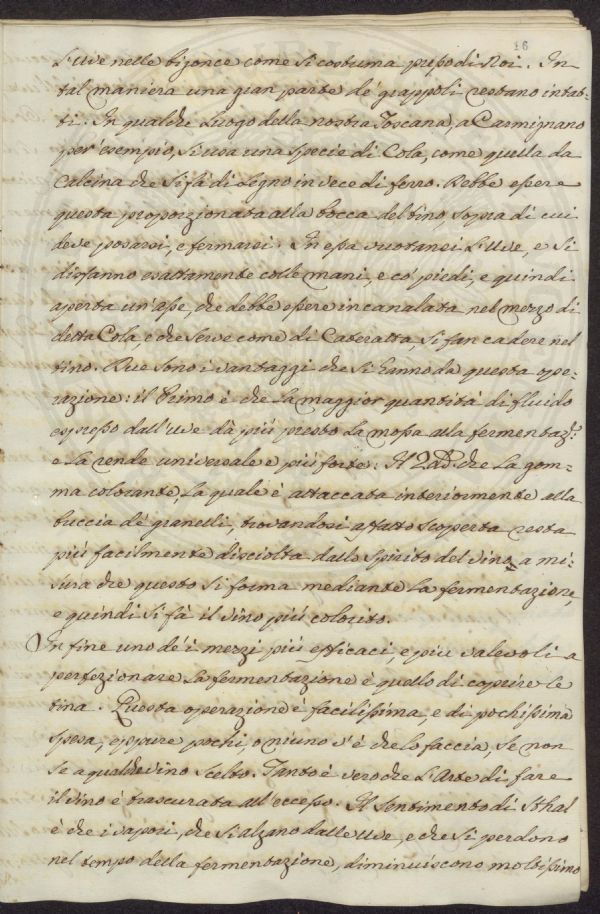 16
L'uve nelle bigonce come si costuma presso di Noi. In
tal maniera una gran parte de' grappoli restano intat-
ti. In qualche Luogo della nostra Toscana, a Carmignano
per esempio, si usa una specie di Cola, come quella da
Calcina che si fà di Legno in vece di ferro. Debbe essere
questa proporzionata alla bocca del tino, sopra di cui
deve posarsi, e fermarsi. In essa vuotansi L'uve, e si
disfanno esattamente colle mani, e co' piedi, e quindi
aperta un'asse, che debbe essere incanalata nel mezzo di
detta Cola, e che serve come di Cateratta, si fan cadere nel
tino. Due sono i vantaggi che si hanno da questa ope-
razione: il Primo è che la maggior quantità di fluido
espresso dall'uve dà più presto la mossa alla fermentaz.e
e la rende universale e più forte: Il 2.do che la gom-
ma colorante, la quale è attaccata interiormente alla
buccia de' granelli, trovandosi affatto scoperta resta
più facilmente disciolta dallo spirito del vino a mi-
sura che questo si forma mediante la fermentazione,
e quindi si fà il vino più colorito.
In fine uno de' i mezzi più efficaci, e più valevoli a
perfezionare la fermentazione è quello di coprire le
tina. Questa operazione è facilissima, e di pochissima
spesa, eppure pochi, o niuno v'è che lo faccia, se non
se a qualche vino scelto. Tanto è vero che L'Arte di fare
il vino è trascurata all'eccesso. Il sentimento di Sthal
è che i vapori, che si alzano dalle uve, e che si perdono
nel tempo della fermentazione, diminuiscono moltissimo